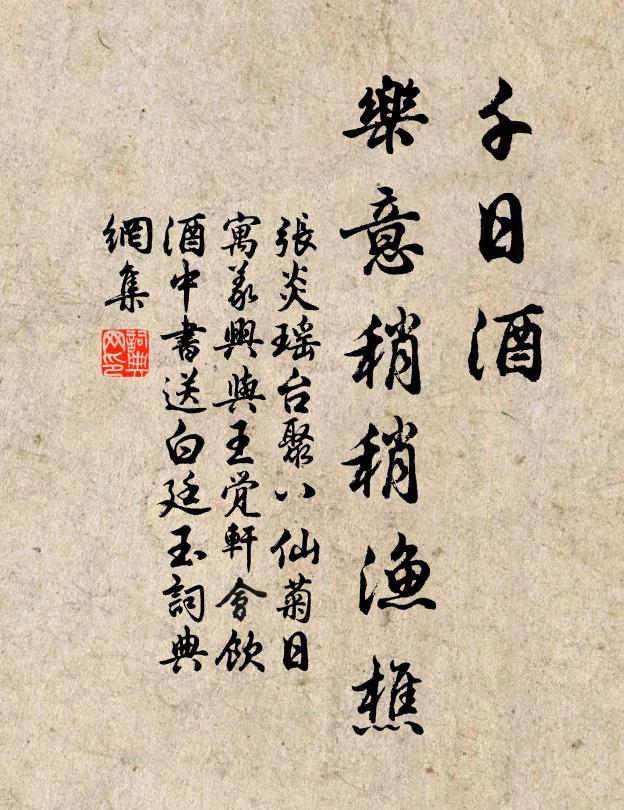 千日酒
樂意稍稍漁樵
張炎瑶台聚八仙菊日
寓義興與王覚軒會飲
酒中書送白廷玉詞典
網集
詞典网印